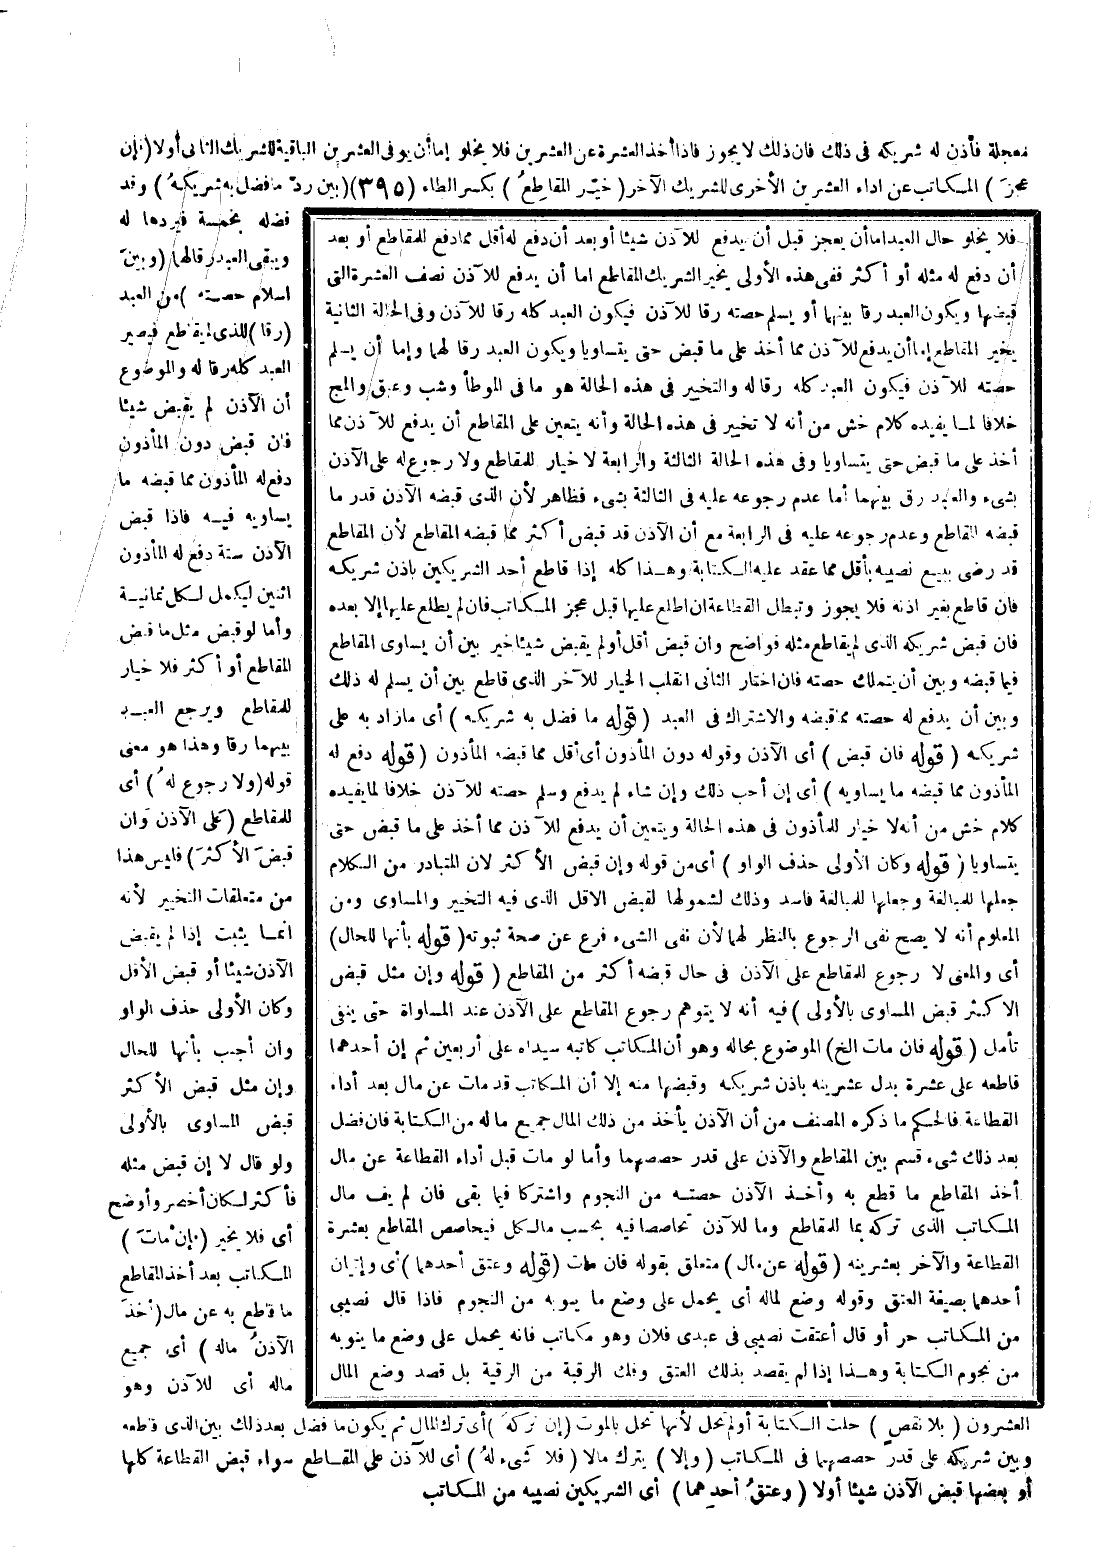 معجلة فأذن له شريكه فى ذلك فان ذلك لا يجوز فاذا أخذ العشرة عن العشرين فلا يخلو إما أن يوفى العشرين الباقية للشريك الثانى أولا (فإن
عجز) المكاتب عن اداء العشرين الأخرى للشريك الآخر (خير المقاطِعُ) بكسر الطاء (٣٩٥) (بين ردّ ما فضل به شريكهُ) وقد
فضله بخمسة فيردها له
ويبقى العبد رقا لهما (وبين
اسلام حصته) من العبد
(رقا) للذى لم يقاطع فيصير
العبد كله رقا له والموضوع
أن الآذن لم يقبض شيئا
فان قبض دون المأذون
دفع له المأذون مما قبضه ما
يساويه فيه فاذا قبض
الآذن ستة دفع له المأذون
اثنين ليكمل لكل ثمانية
وأما لو قبض مثل ما قبض
المقاطع أو أكثر فلا خيار
للمقاطع ويرجع العبد
بينهما رقا وهذا هو معنى
قوله (ولا رجوع لهُ) أى
للمقاطع (على الآذن وَان
قبضَ الأكثرَ) فليس هذا
من متعلقات التخيير لأنه
انما يثبت إذا لم يقبض
الآذن شيئا أو قبض الأقل
وكان الأولى حذف الواو
وان أجيب بأنها للحال
وإن مثل قبض الأكثر
قبض المساوى بالأولى
ولو قال لا إن قبض مثله
فأكثر لكان أخصر وأوضح
أى فلا يخير (فإن ماتَ)
المكاتب بعد أخذ المقاطع
ما قاطع به عن مال (أخذَ
الآذنُ ماله) أى جميع
ماله أى للآذن وهو
فلا يخلو حال العبد اما أن يعجز قبل أن يدفع للآذن شيئا أو بعد أن دفع له أقل مما دفع للمقاطع أو بعد
أن دفع له مثله أو أكثر ففى هذه الأولى يخير الشريك المقاطع اما أن يدفع للآذن نصف العشرة التى
قبضها ويكون العبد رقا بينهما أو يسلم حصته رقا للآذن فيكون العبد كله رقا للآذن وفى الحالة الثانية
يخير المقاطع إما أن يدفع للآذن مما أخذ على ما قبض حتى يتساويا ويكون العبد رقا لهما وإما أن يسلم
حصته للآذن فيكون العبد كله رقا له والتخيير فى هذه الحالة هو ما فى الموطأ وشب وعبق والمج
خلافا لما يفيده كلام خش من أنه لا تخيير فى هذه الحالة وأنه يتعين على المقاطع أن يدفع للآذن مما
أخذ على ما قبض حتى يتساويا وفى هذه الحالة الثالثة والرابعة لا خيار للمقاطع ولا رجوع له على الآذن
بشىء والعبد رق بينهما أما عدم رجوعه عليه فى الثالثة بشىء فظاهر لأن الذى قبضه الآذن قدر ما
قبضه المقاطع وعدم رجوعه عليه فى الرابعة مع أن الآذن قد قبض أكثر مما قبضه المقاطع لأن المقاطع
قد رضى ببيع نصيبه بأقل مما عقد عليه الكتابة وهذا كله إذا قاطع أحد الشريكين باذن شريكه
فان قاطع بغير اذنه فلا يجوز وتبطل القطاعة ان اطلع عليها قبل عجز المكاتب فان لم يطلع عليها إلا بعده
فان قبض شريكه الذى لم يقاطع مثله فواضح وان قبض أقل أو لم يقبض شيئا خير بين أن يساوى المقاطع
فيما قبضه وبين أن يتملك حصته فان اختار الثانى انقلب الخيار للآخر الذى قاطع بين أن يسلم له ذلك
وبين أن يدفع له حصته مما قبضه والاشتراك فى العبد (قوله ما فضل به شريكه) أى ما زاد به على
شريكه (قوله فان قبض) أى الآذن وقوله دون المأذون أى أقل مما قبضه المأذون (قوله دفع له
المأذون مما قبضه ما يساويه) أى إن أحب ذلك وإن شاء لم يدفع وسلم حصته للآذن خلافا لما يفيده
كلام خش من أنه لا خيار للمأذون فى هذه الحالة ويتعين أن يدفع للآذن مما أخذ على ما قبض حتى
يتساويا (قوله وكان الأولى حذف الواو) أى من قوله وإن قبض الأكثر لان المتبادر من الكلام
جعلها للمبالغة وجعلها للمبالغة فاسد وذلك لشمولها لقبض الاقل الذى فيه التخيير والمساوى ومن
المعلوم أنه لا يصح نفى الرجوع بالنظر لهما لأن نفى الشىء فرع عن صحة ثبوته (قوله بأنها للحال)
أى والمعنى لا رجوع للمقاطع على الآذن فى حال قبضه أكثر من المقاطع (قوله وإن مثل قبض
الاكثر قبض المساوى بالأولى) فيه أنه لا يتوهم رجوع المقاطع على الآذن عند المساواة حتى ينفى
تأمل (قوله فان مات الخ) الموضوع بحاله وهو أن المكاتب كاتبه سيداه على أربعين ثم إن أحدهما
قاطعه على عشرة بدل عشرينه باذن شريكه وقبضها منه إلا أن المكاتب قد مات عن مال بعد أداء
القطاعة فالحكم ما ذكره المصنف من أن الآذن يأخذ من ذلك المال جميع ماله من الكتابة فان فضل
بعد ذلك شىء قسم بين المقاطع والآذن على قدر حصصهما وأما لو مات قبل أداء القطاعة عن مال
أخذ المقاطع ما قطع به وأخذ الآذن حصته من النجوم واشتركا فيما بقى فان لم يف مال
المكاتب الذى تركه بما للمقاطع وما للآذن تحاصصا فيه بحسب مالكل فيحاصص المقاطع بعشرة
القطاعة والآخر بعشرينه (قوله عن مال) متعلق بقوله فان مات (قوله وعتق أحدهما) أى وإتيان
أحدهما بصيغة العتق وقوله وضع لماله أى يحمل على وضع ما ينوبه من النجوم فاذا قال نصيبى
من المكاتب حر أو قال أعتقت نصيبى فى عبدى فلان وهو مكاتب فانه يحمل على وضع ما ينوبه
من نجوم الكتابة وهذا إذا لم يقصد بذلك العتق وفك الرقبة من الرقية بل قصد وضع المال
العشرون (بلا نقصٍ) حلت الكتابة أو لم تحل لأنها تحل بالموت (إن تركهُ) أى ترك المال ثم يكون ما فضل بعد ذلك بين الذى قاطعه
وبين شريكه على قدر حصصهما فى المكاتب (وإلا) يترك مالا (فلا شىء لهُ) أى للآذن على المقاطع سواء قبض القطاعة كلها
أو بعضها قبض الآذن شيئا أولا (وعتقُ أحدِهما) أى الشريكين نصيبه من المكاتب